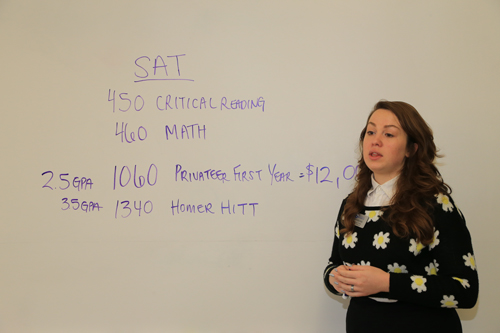 SAT
450 CRITICAL READING
460 MATH
2.5 GPA 1060 PRIVATEER FIRST YEAR = $12,0
35 GPA 1340 HOMER HITT